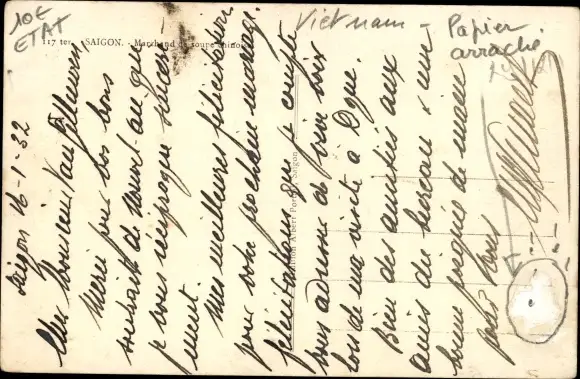 10E
ETAT
Viet nam -
Papier
arraché
117 ter. - SAIGON. - Marchand de soupe chinois
Saigon 16-1-32
Cher Monsieur
Merci pour vos bons
souhaits de nouvel an que
je vous réciproque
ment.
Mes meilleures félicitations
pour votre prochain mariage,
félicitations que je compte
vous adresser de vive voix
lors de ma visite à
Bien des amitiés aux
amis du bureau & une
bonne poignée de main
pour vous